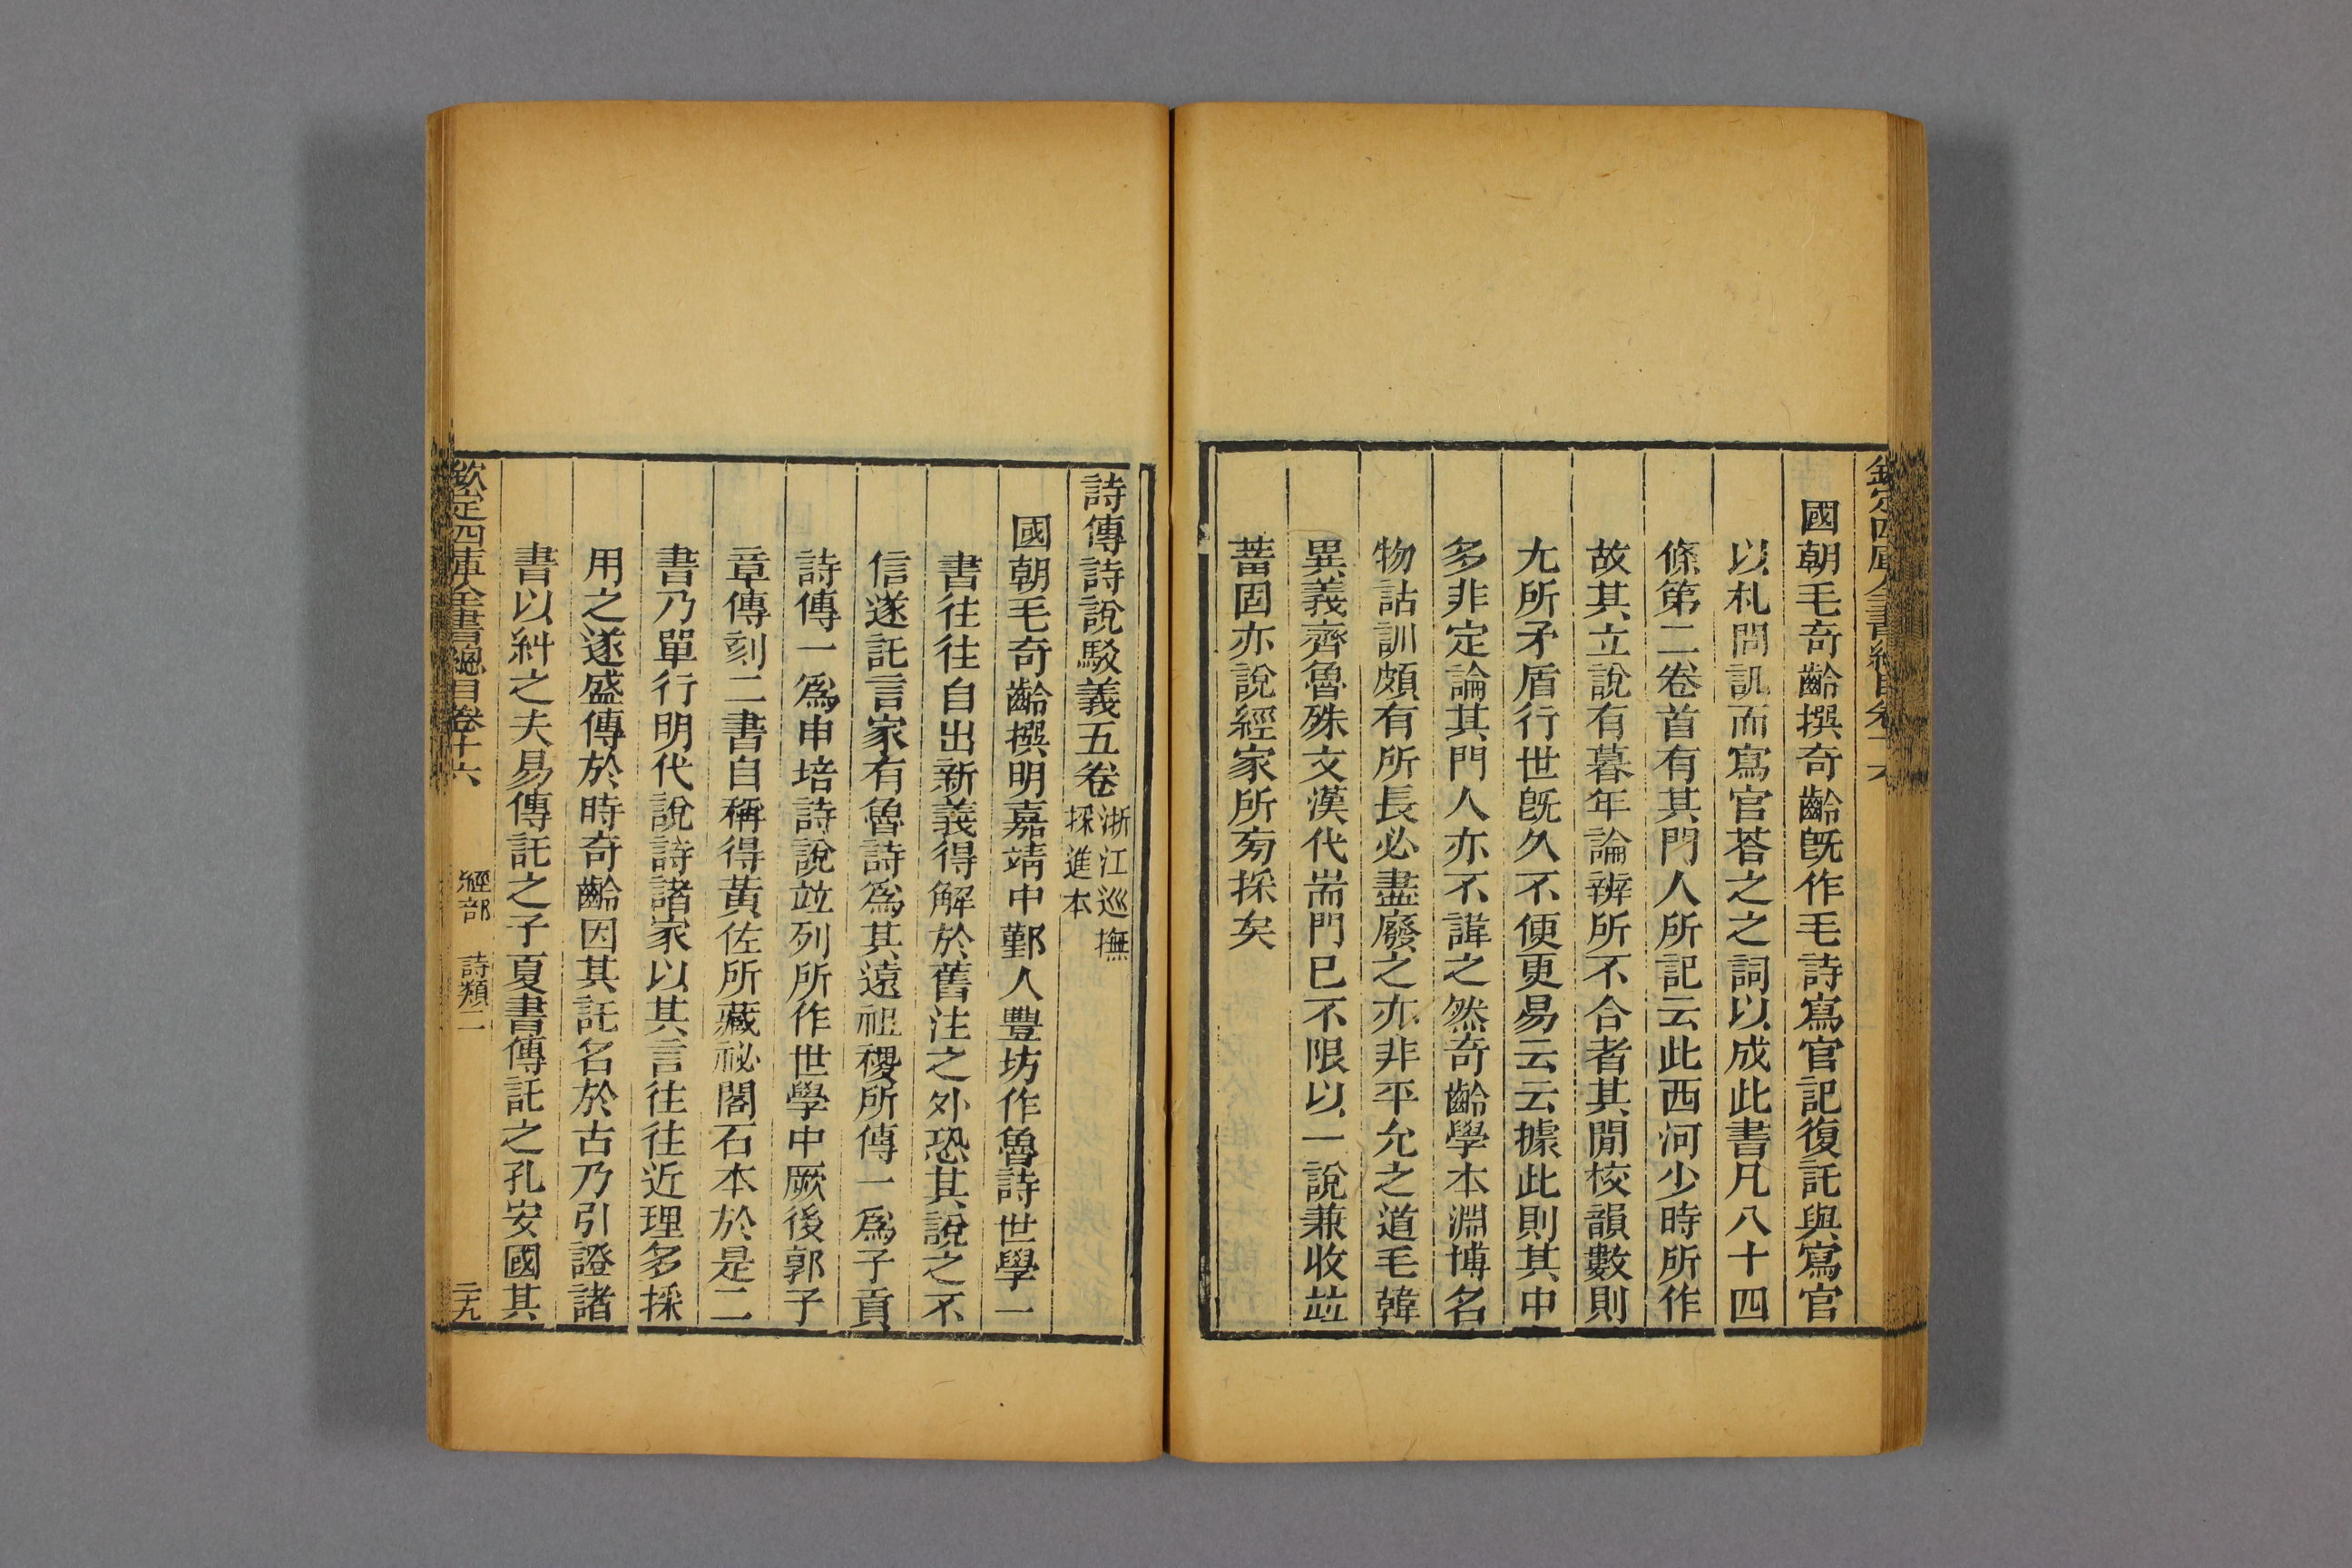 欽定四庫全書總目卷十六
國朝毛奇齡撰奇齡旣作毛詩寫官記復託與寫官
以札問訊而寫官荅之之詞以成此書凡八十四
條第二卷首有其門人所記云此西河少時所作
故其立說有暮年論辨所不合者其閒校韻數則
尢所矛盾行世旣久不便更易云云據此則其中
多非定論其門人亦不諱之然奇齡學本淵博名
物詁訓頗有所長必盡廢之亦非平允之道毛韓
異義齊魯殊文漢代耑門已不限以一說兼收竝
蓄固亦說經家所㫄採矣
詩傳詩說駁義五卷浙江巡撫
採進本
國朝毛奇齡撰明嘉靖中鄞人豐坊作魯詩世學一
書往往自出新義得解於舊注之外恐其說之不
信遂託言家有魯詩爲其遠祖稷所傳一爲子貢
詩傳一爲申培詩說竝列所作世學中厥後郭子
章傳刻二書自稱得黃佐所藏祕閣石本於是二
書乃單行明代說詩諸家以其言往往近理多採
用之遂盛傳於時奇齡因其託名於古乃引證諸
書以糾之夫易傳託之子夏書傳託之孔安國其
欽定四庫全書總目卷十六 經部 詩類二 二十九